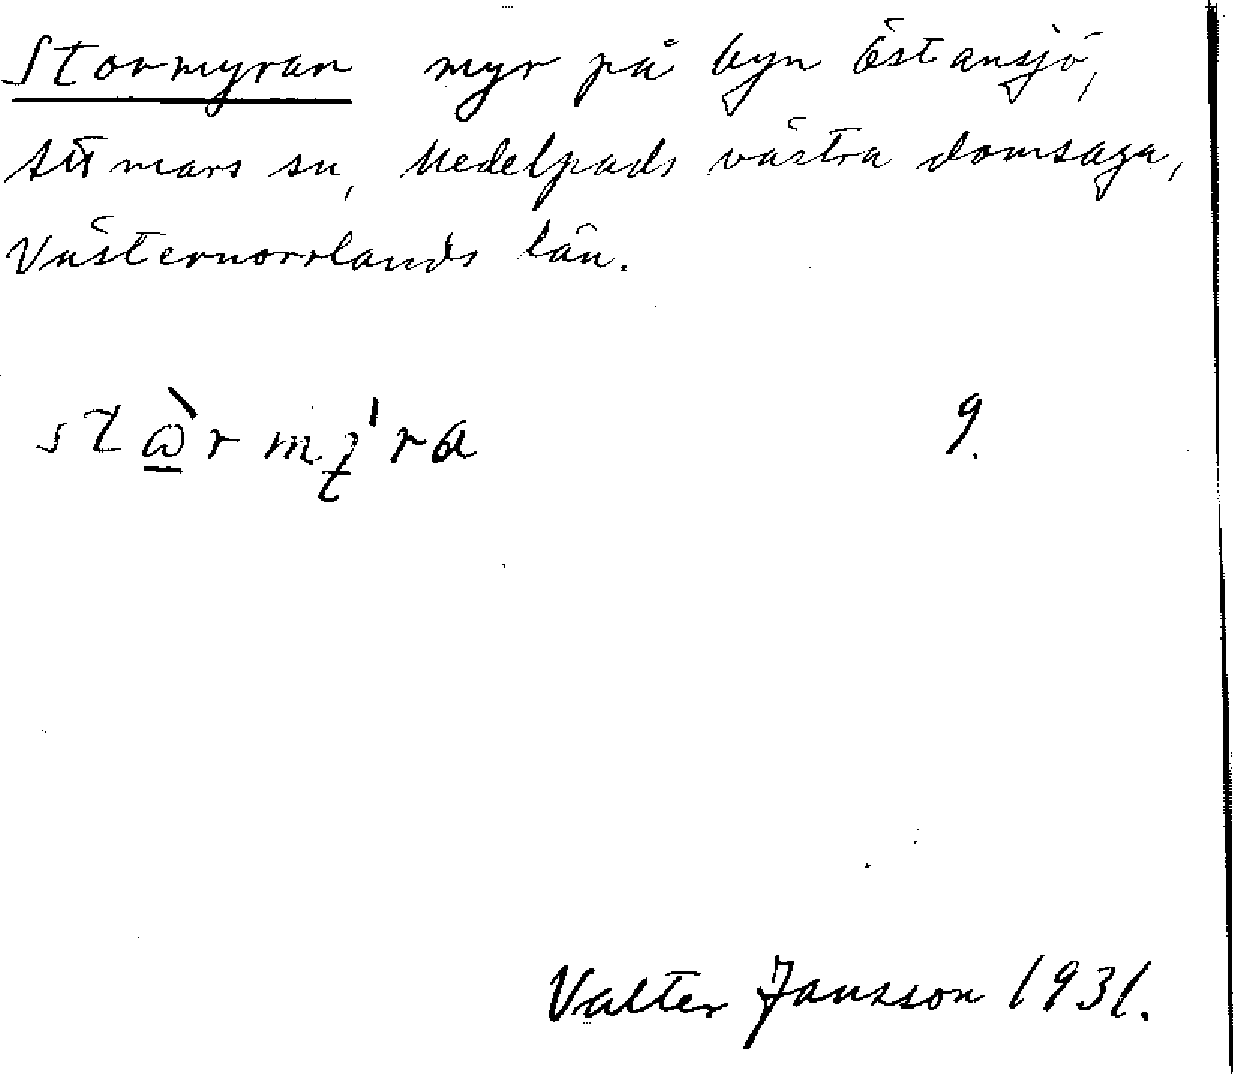 Stormyran myr på byn Östansjö,
Attmars sn, Medelpads västra domsaga,
Västernorrlands län.
9.
Valter Jansson 1931.